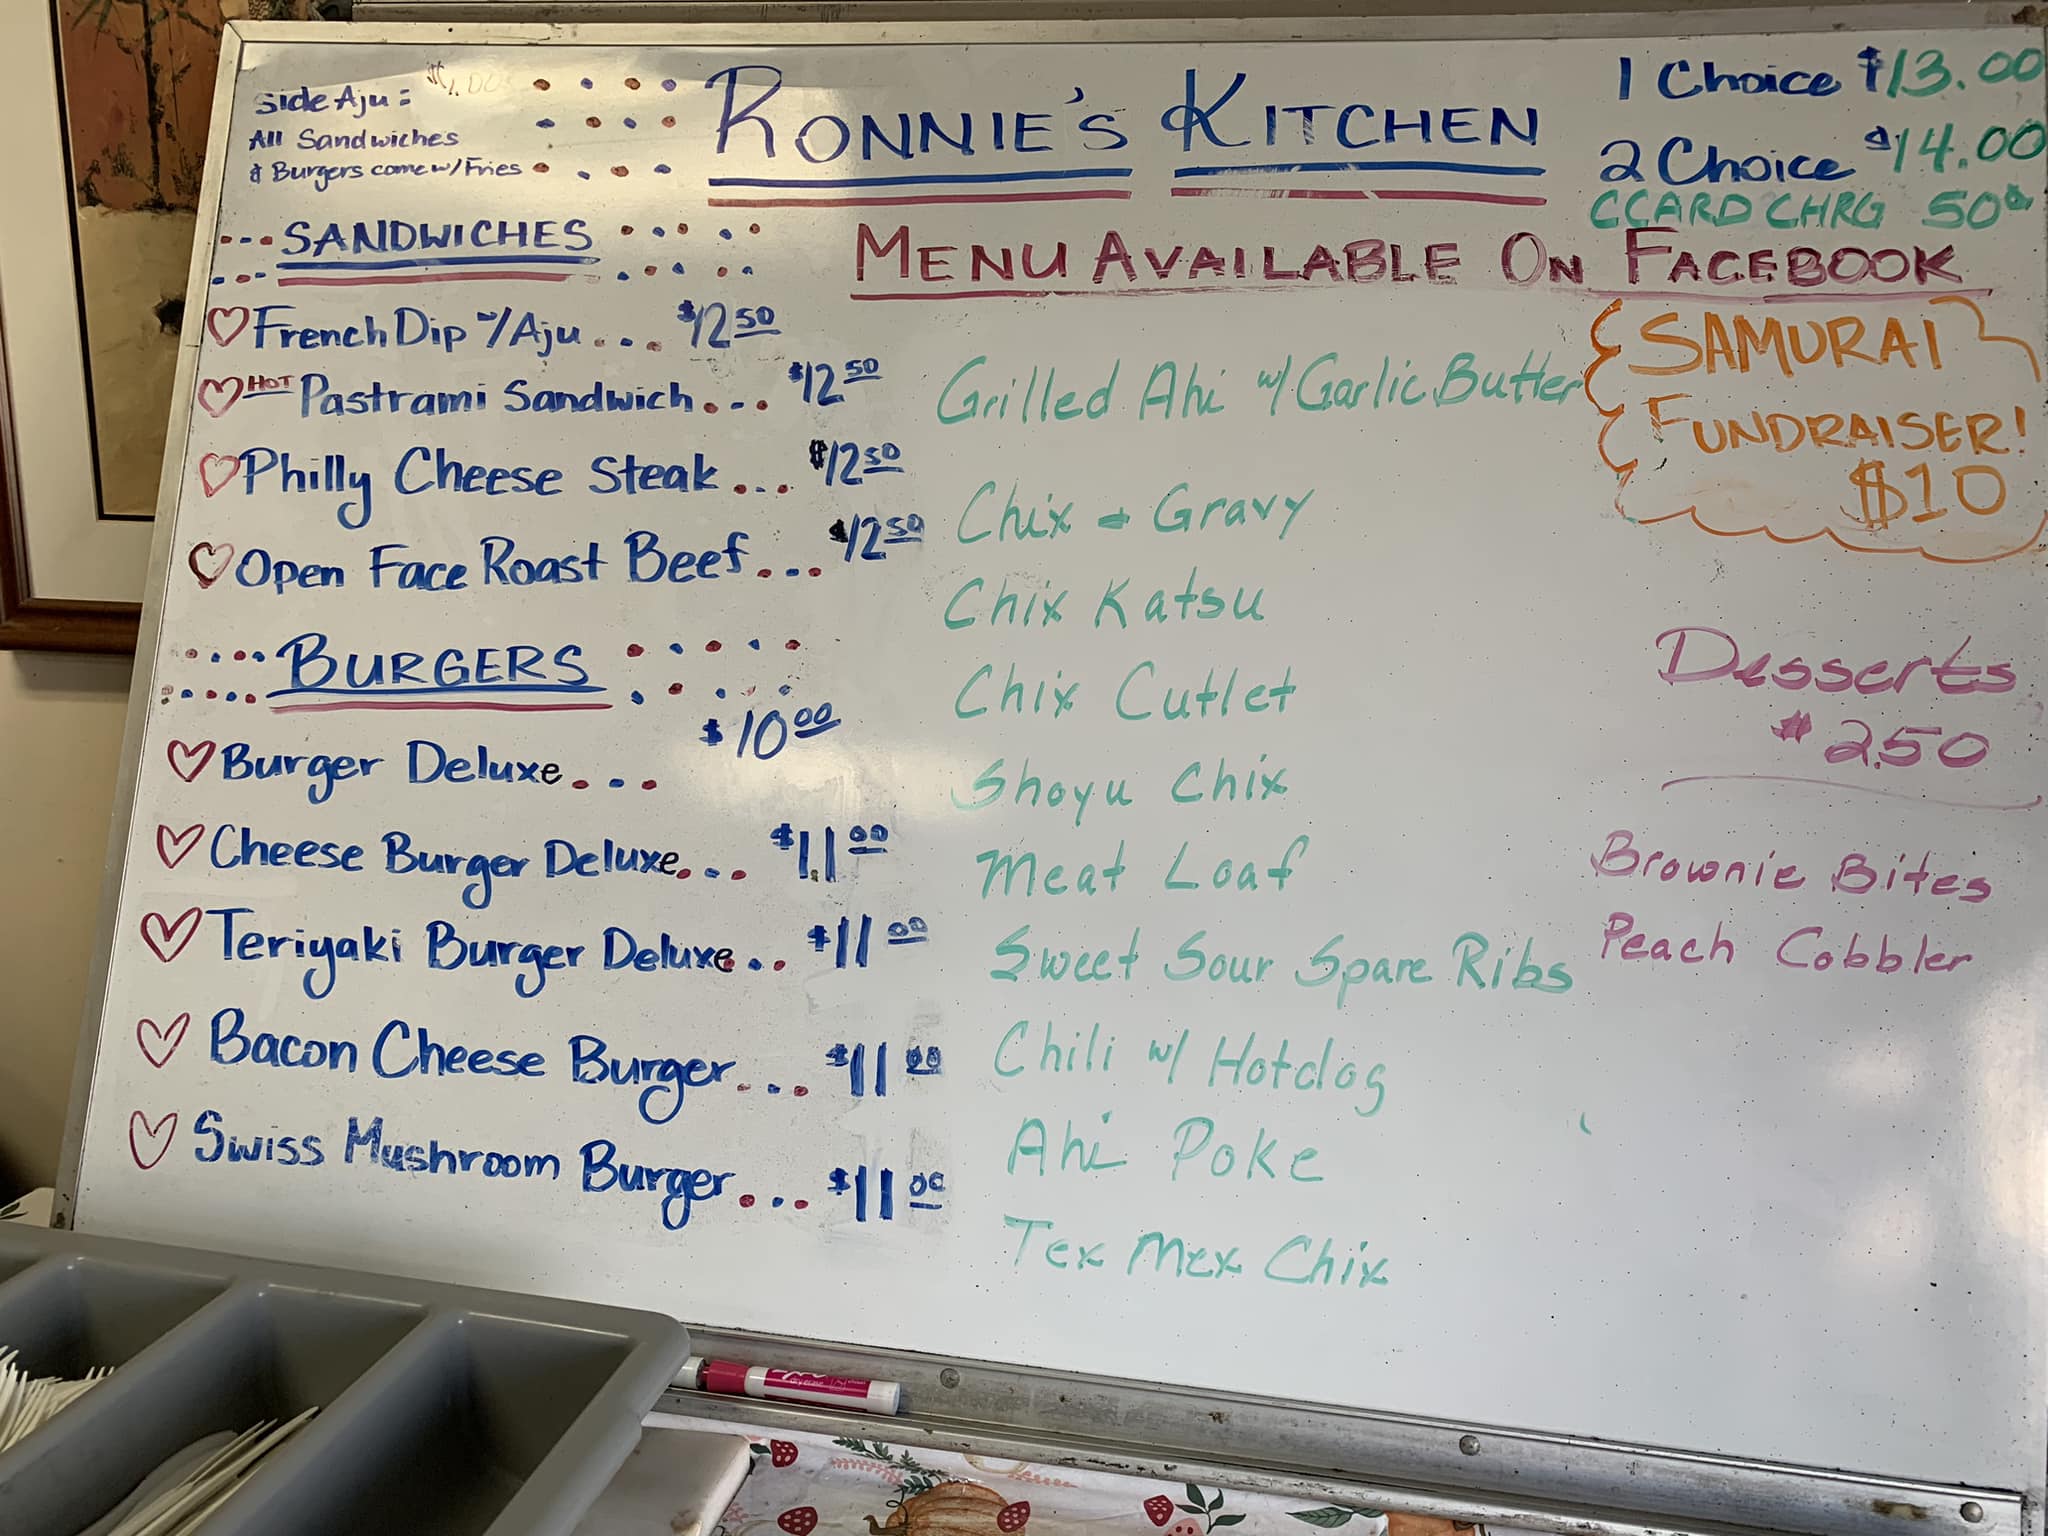 Side Aju =
All Sandwiches
& Burgers come w/ Fries
RONNIE'S KITCHEN
1 Choice $13.00
2 Choice $14.00
CCARD CHRG 50¢
MENU AVAILABLE ON FACEBOOK
SANDWICHES
French Dip w/Aju... $12.50
HOT Pastrami Sandwich... $12.50
Philly Cheese Steak... $12.50
Open Face Roast Beef... $12.50
BURGERS
Burger Deluxe... $10.00
Cheese Burger Deluxe... $11.00
Teriyaki Burger Deluxe... $11.00
Bacon Cheese Burger... $11.00
Swiss Mushroom Burger... $11.00
Grilled Ahi w/ Garlic Butter
Chix + Gravy
Chix Katsu
Chix Cutlet
Shoyu Chix
Meat Loaf
Sweet Sour Spare Ribs
Chili w/ Hotdog
Ahi Poke
Tex Mex Chix
SAMURAI
FUNDRAISER!
$10
Desserts
$2.50
Brownie Bites
Peach Cobbler